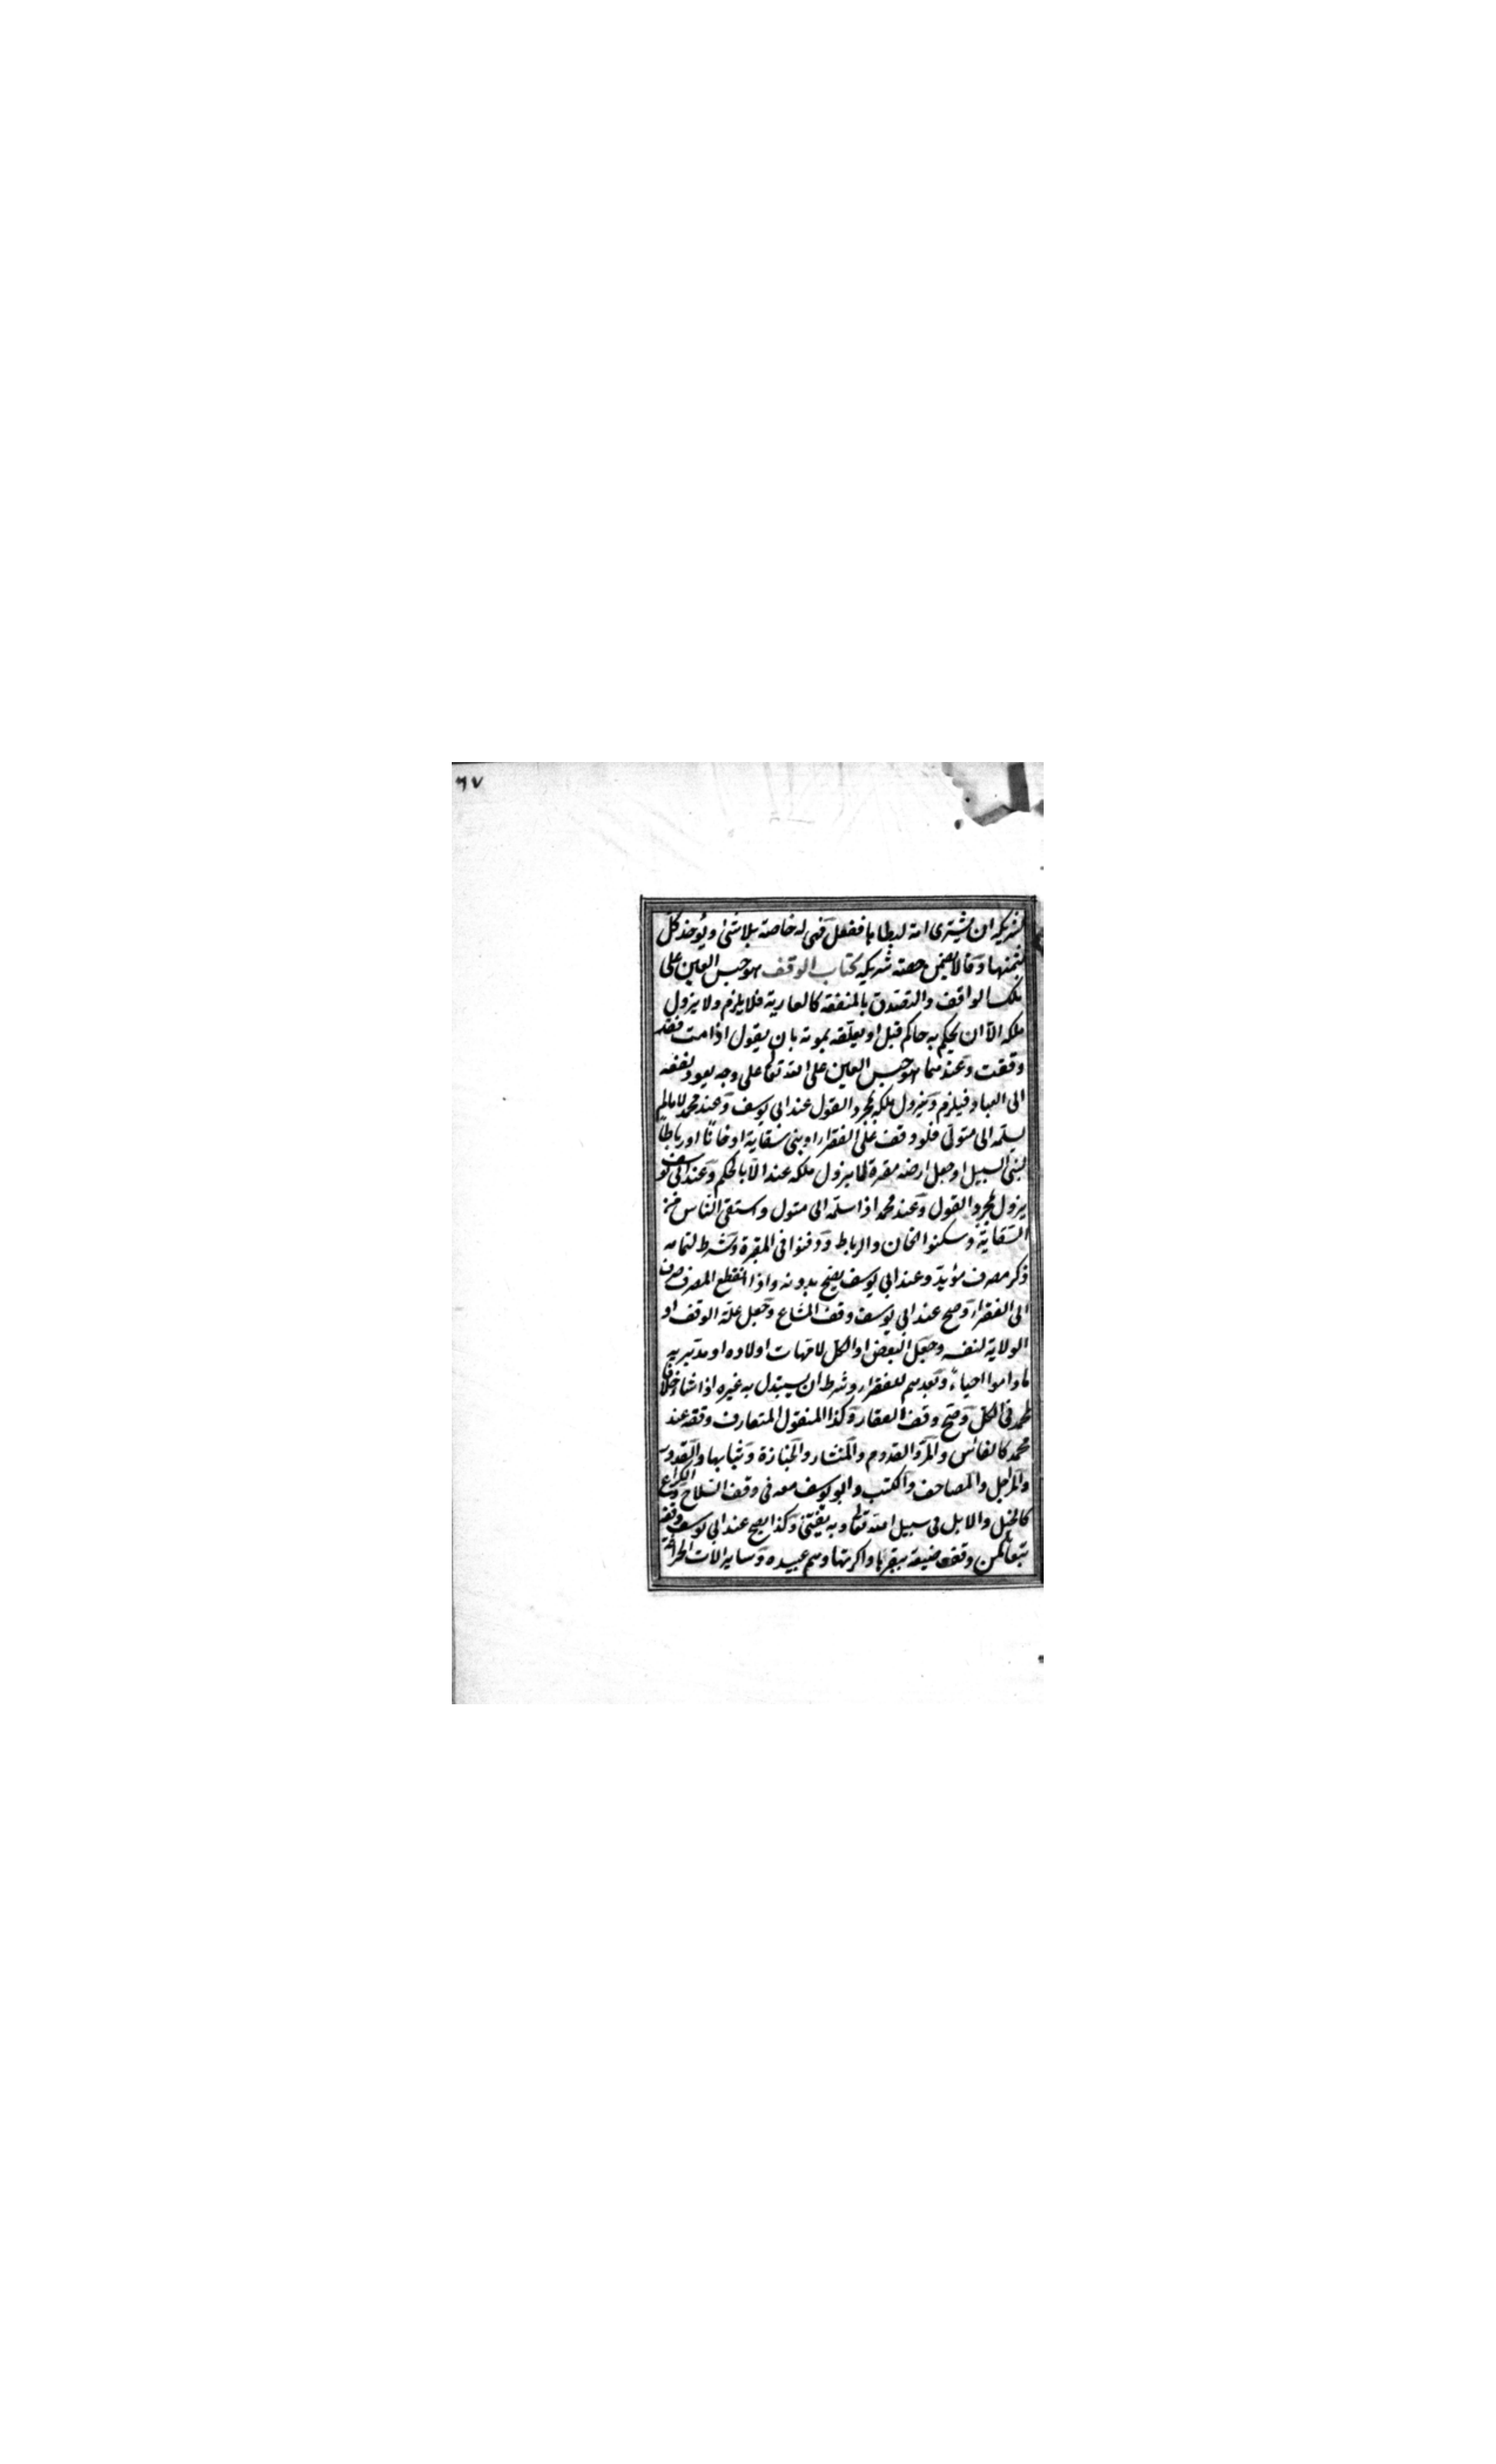 ٦٧
لشريكه ان يشترى امة ليطاها ففعل فهى له خاصة بلا شئ ويؤخذ كل
بثمنها وقالا يضمن حصته شريكه كتاب الوقف هو حبس العين على
ملك الواقف والتصدق بالمنفعة كالعارية فلا يلزم ولا يزول
ملكه الا ان يحكم به حاكم قيل او يعلقه بموته بان يقول اذا مت فقد
وقفت وعندهما هو حبس العين على الله تعا على وجه يعود نفعه
الى العباد فيلزم ويزول ملكه بمجرد القول عند ابى يوسف وعند محمد لا ما لم
يسلمه الى متولى فلو وقف على الفقراء او بنى سقاية او خانا او رباطا
لبنى السبيل او جعل ارضه مقبرة لا يزول ملكه عنه الا بالحكم وعند ابى يوسف
يزول بمجرد القول وعند محمد اذا سلمه الى متول واستقى الناس من
السقاية وسكنوا الخان والرباط ودفنوا فى المقبرة وشرط لتمامه
ذكر مصرف مؤبد وعند ابى يوسف يصح بدونه واذا انقطع المصرف صرف
الى الفقراء وصح عند ابى يوسف وقف المشاع وجعل غلة الوقف او
الولاية لنفسه وجعل البعض او الكل لامهات اولاده او مدبريه
ما داموا احياء وبعدهم للفقراء وشرط ان يستبدل به غيره اذا شاء خلافا
لمحمد فى الكل وصح وقف العقار وكذا المنقول المتعارف وقفه عند
محمد كالفائس والمر والقدوم والمنشار والجنازة وثيابها والقدور
والمراجل والمصاحف والكتب وابو يوسف معه فى وقف السلاح والكراع
كالخيل والابل فى سبيل الله تعا وبه يفتى وكذا يصح عند ابى يوسف وقفه
تبعا كمن وقف ضيعة ببقرها واكرتها وهم عبيده وساير آلات الحراثة